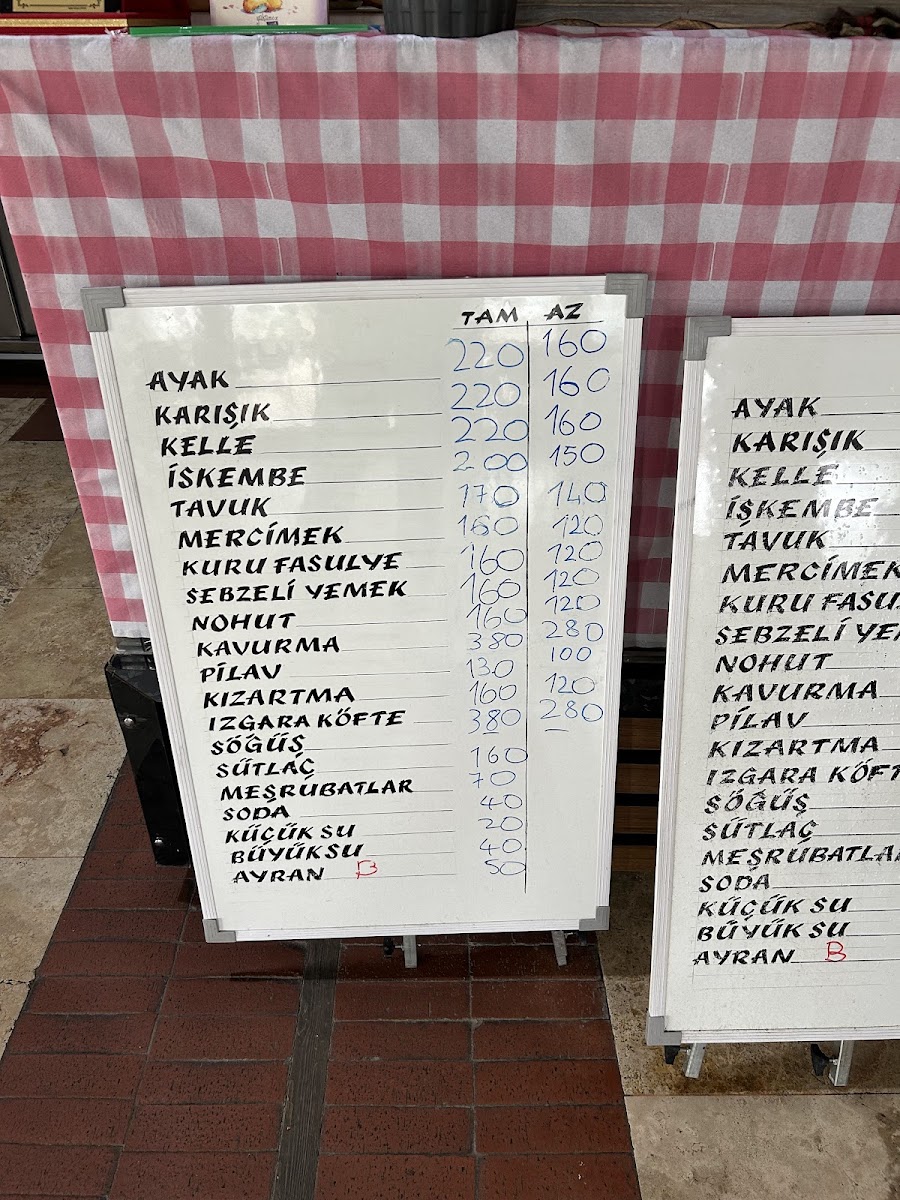 TAM AZ
AYAK 220 160
KARIŞIK 220 160
KELLE 220 160
İŞKEMBE 200 150
TAVUK 170 140
MERCİMEK 160 120
KURU FASULYE 160 120
SEBZELİ YEMEK 160 120
NOHUT 160 120
KAVURMA 380 280
PİLAV 130 100
KIZARTMA 160 120
IZGARA KÖFTE 380 280
SÖĞÜŞ
SÜTLAÇ 160
MEŞRUBATLAR 70
SODA 40
KÜÇÜK SU 20
BÜYÜK SU 40
AYRAN B 50
AYAK
KARIŞIK
KELLE
İŞKEMBE
TAVUK
MERCİMEK
KURU FASU
SEBZELİ YE
NOHUT
KAVURMA
PİLAV
KIZARTMA
IZGARA KÖFT
SÖĞÜŞ
SÜTLAÇ
MEŞRUBATLA
SODA
KÜÇÜK SU
BÜYÜK SU
AYRAN B